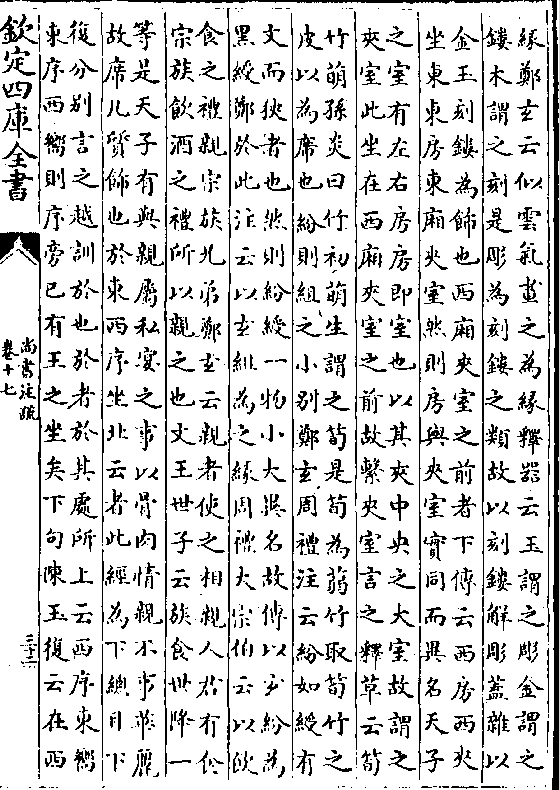 緣鄭玄云似雲氣畫之為緣釋器云玉謂之彫金謂之
鏤木謂之刻是彫為刻鏤之類故以刻鏤解彫蓋雜以
金玉刻鏤為飾也西廂夾室之前者下傳云西房西夾
坐東東房東廂夾室然則房與夾室實同而異名天子
之室有左右房房即室也以其夾中央之大室故謂之
夾室此坐在西廂夾室之前故繫夾室言之釋草云筍
竹萌孫炎曰竹初萌生謂之筍是筍為蒻竹取筍竹之
皮以為席也紛則組之小別鄭玄周禮注云紛如綬有
文而狹者也然則紛綬一物小大異名故傳以玄紛為
黑綬鄭於此注云以玄組為之緣周禮大宗伯云以飲
食之禮親宗族兄弟鄭玄云親者使之相親人君有食
宗族飲酒之禮所以親之也文王世子云族食世降一
等是天子有與親屬私宴之事以骨肉情親不事華麗
故席几質飾也於東西序坐北云者此經為下總目下
復分別言之越訓於也於者於其處所上云西序東嚮
東序西嚮則序旁已有王之坐矣下句陳玉復云在西
欽定四庫全書
尚書注疏
卷十七
三十二